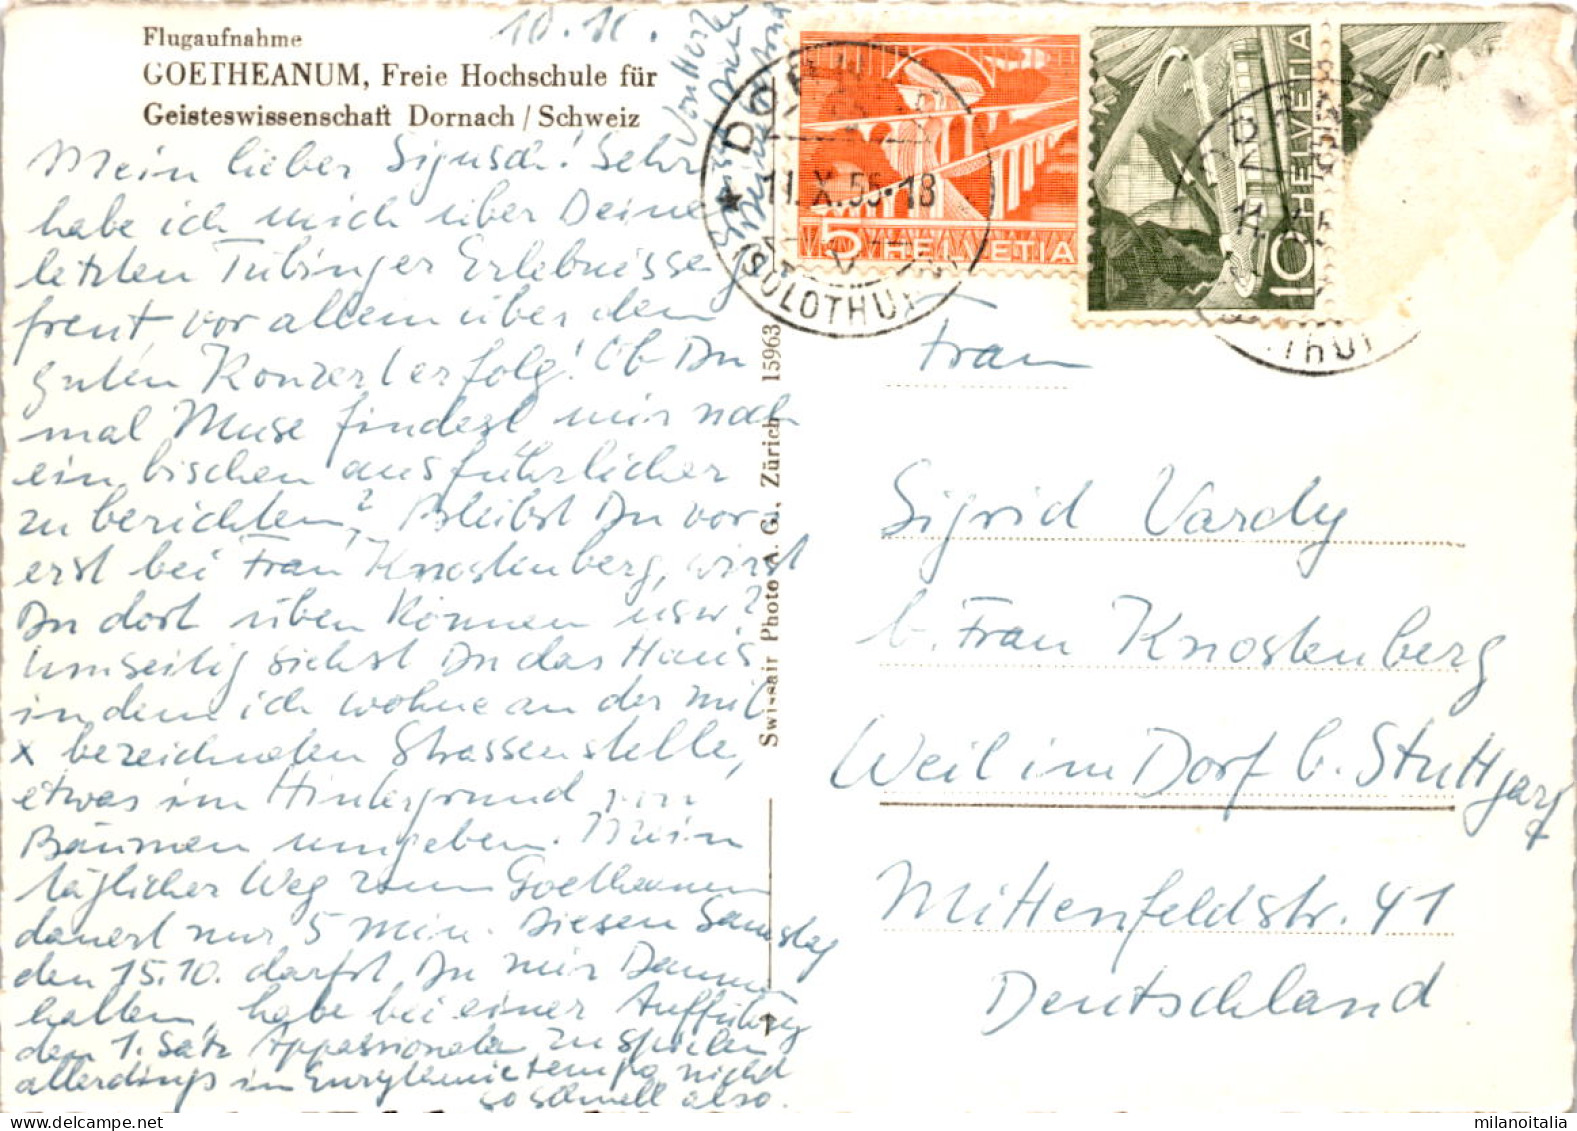 10. X.
Flugaufnahme
GOETHEANUM, Freie Hochschule für
Geisteswissenschaft Dornach / Schweiz
Mein lieber Sigusch! Sehr
habe ich mich über Deine
letzten Tübinger Erlebnisse
freut, vor allem über den
guten Konzerterfolg! Ob Du
mal Muse findest mir noch
ein bischen ausführlicher
zu berichten? Bleibst Du vor-
erst bei Frau Knostenberg, wirst
Du dort üben können usw?
Umseitig siehst Du das Haus
in dem ich wohne an der mit
x bezeichneten Strassenstelle,
etwas im Hintergrund von
Bäumen umgeben. Mein
täglicher Weg zum Goetheanum
dauert nur 5 Min. Diesen Samstag
den 15.10. darfst Du mir Daumen
halten, habe bei einer Aufführung
den 1. Satz Appassionata zu spielen
allerdings in Eurythmietempo nicht
so schnell also.
Von Herzen
Deine
Swissair Photo A. G., Zürich 15963
DOR
11. X. 55-18
(SOLOTHURN)
5 HELVETIA
10 HELVETIA
11. X. 5
Frau
Sigrid Vardy
b. Frau Knostenberg
Weil im Dorf b. Stuttgart
Mittenfeldstr. 41
Deutschland
www.milanoitalia